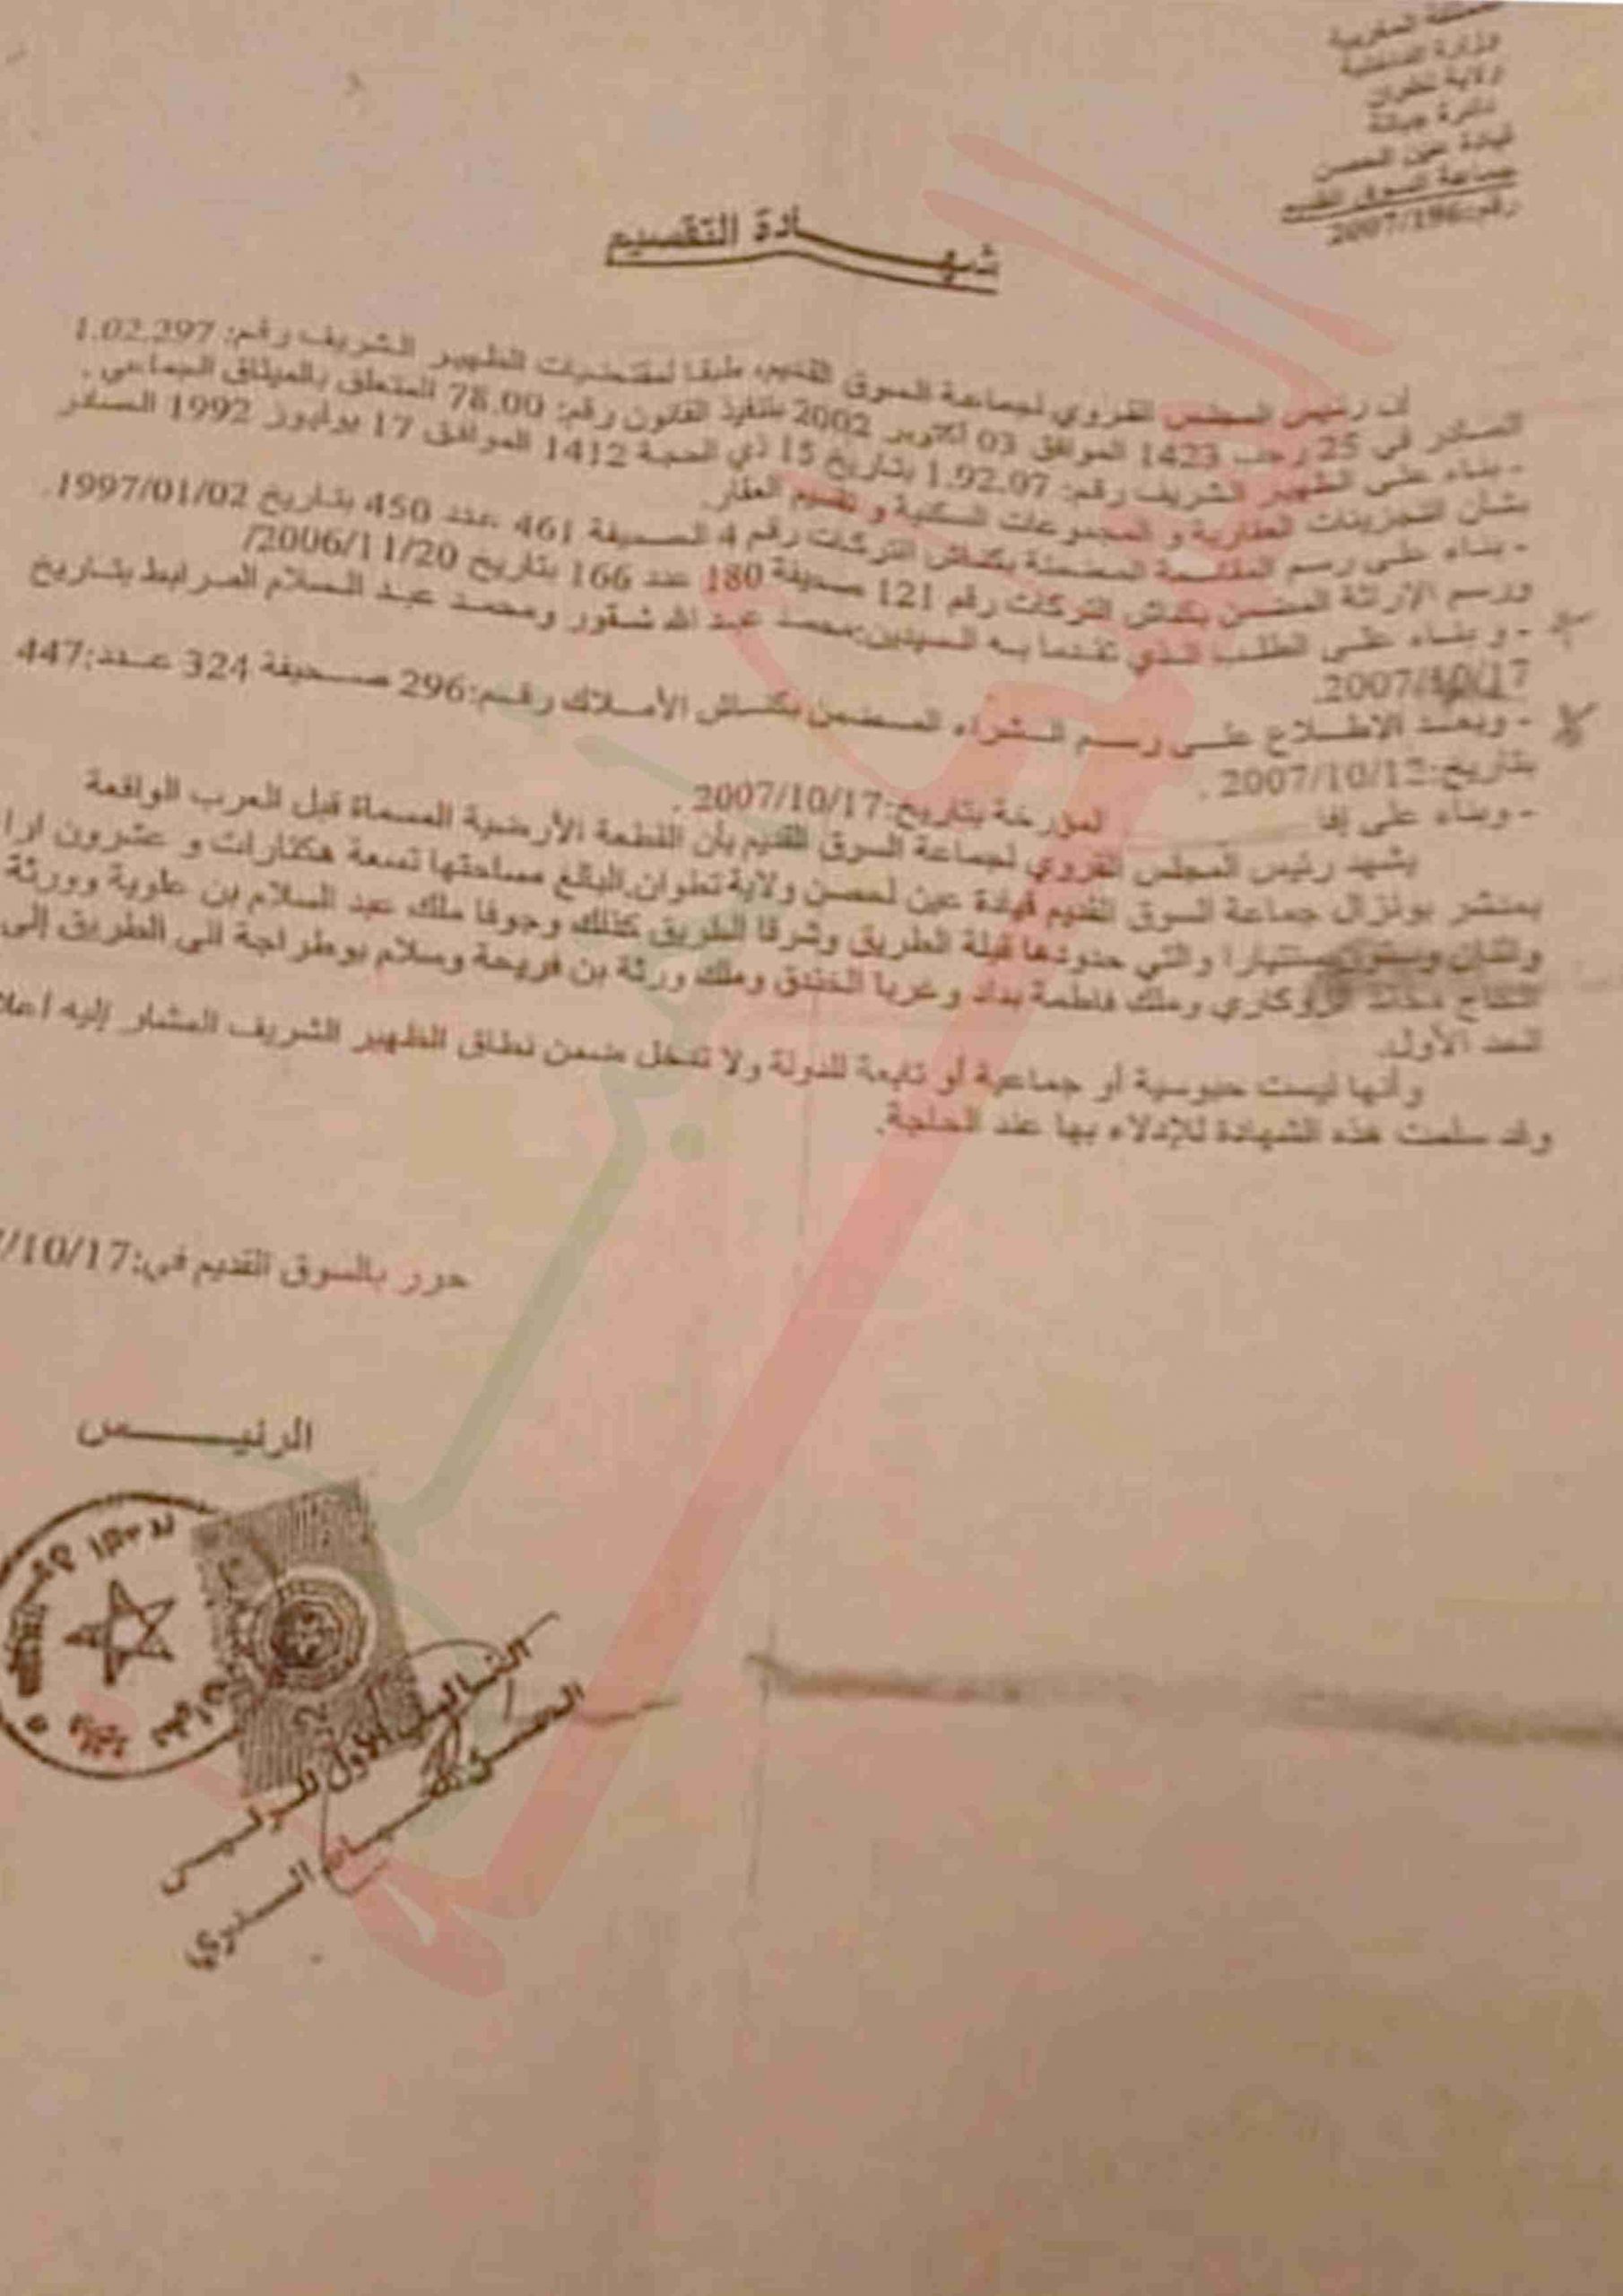 المملكة المغربية
وزارة الداخلية
ولاية تطوان
دائرة جبالة
قيادة عين لحصن
جماعة السوق القديم
رقم:2007/196
شهـــادة التقسيم
إن رئيس المجلس القروي لجماعة السوق القديم، طبقا لمقتضيات الظهير الشريف رقم: 1.02.297
الصادر في 25 رجب 1423 الموافق 03 أكتوبر 2002 بتنفيذ القانون رقم: 78.00 المتعلق بالميثاق الجماعي .
- بناء على الظهير الشريف رقم: 1.92.07 بتاريخ 15 ذي الحجة 1412 الموافق 17 يوليوز 1992 الصادر
بشأن التجزيئات العقارية و المجموعات السكنية و تقسيم العقار.
- بناء على رسم المقاسمة المضمنة بكناش التركات رقم 4 الصحيفة 461 عدد 450 بتاريخ 1997/01/02.
ورسم الإراثة المضمن بكناش التركات رقم 121 صحيفة 180 عدد 166 بتاريخ 2006/11/20/
- وبناء على الطلب الذي تقدما به السيدين:محمد عبد الله شقور ومحمد عبد السلام المرابط بتاريخ
2007/10/17.
- وبعد الاطلاع على رسم الشراء المضمن بكناش الأملاك رقم:296 صحيفة 324 عدد:447
بتاريخ:2007/10/12 .
- وبناء على إفا لمؤرخة بتاريخ:2007/10/17 .
يشهد رئيس المجلس القروي لجماعة السوق القديم بأن القطعة الأرضية المسماة قبل العرب الواقعة
بمدشر بونزال جماعة السوق القديم قيادة عين لحصن ولاية تطوان.البالغ مساحتها تسعة هكتارات و عشرون ارا
واثنان وستون سنتيارا والتي حدودها قبلة الطريق وشرقا الطريق كذلك وجوفا ملك عبد السلام بن علوية وورثة
الزوكاري وملك فاطمة بداد وغربا الخندق وملك ورثة بن فريحة وسلام بوطراجة الى الطريق إلى
الحد الأول.
وأنها ليست حبوسية أو جماعية أو تابعة للدولة ولا تدخل ضمن نطاق الظهير الشريف المشار إليه أعلا
وقد سلمت هذه الشهادة للإدلاء بها عند الحاجة.
حرر بالسوق القديم في:/10/17
الرئيـــــس
الأول للرئيس